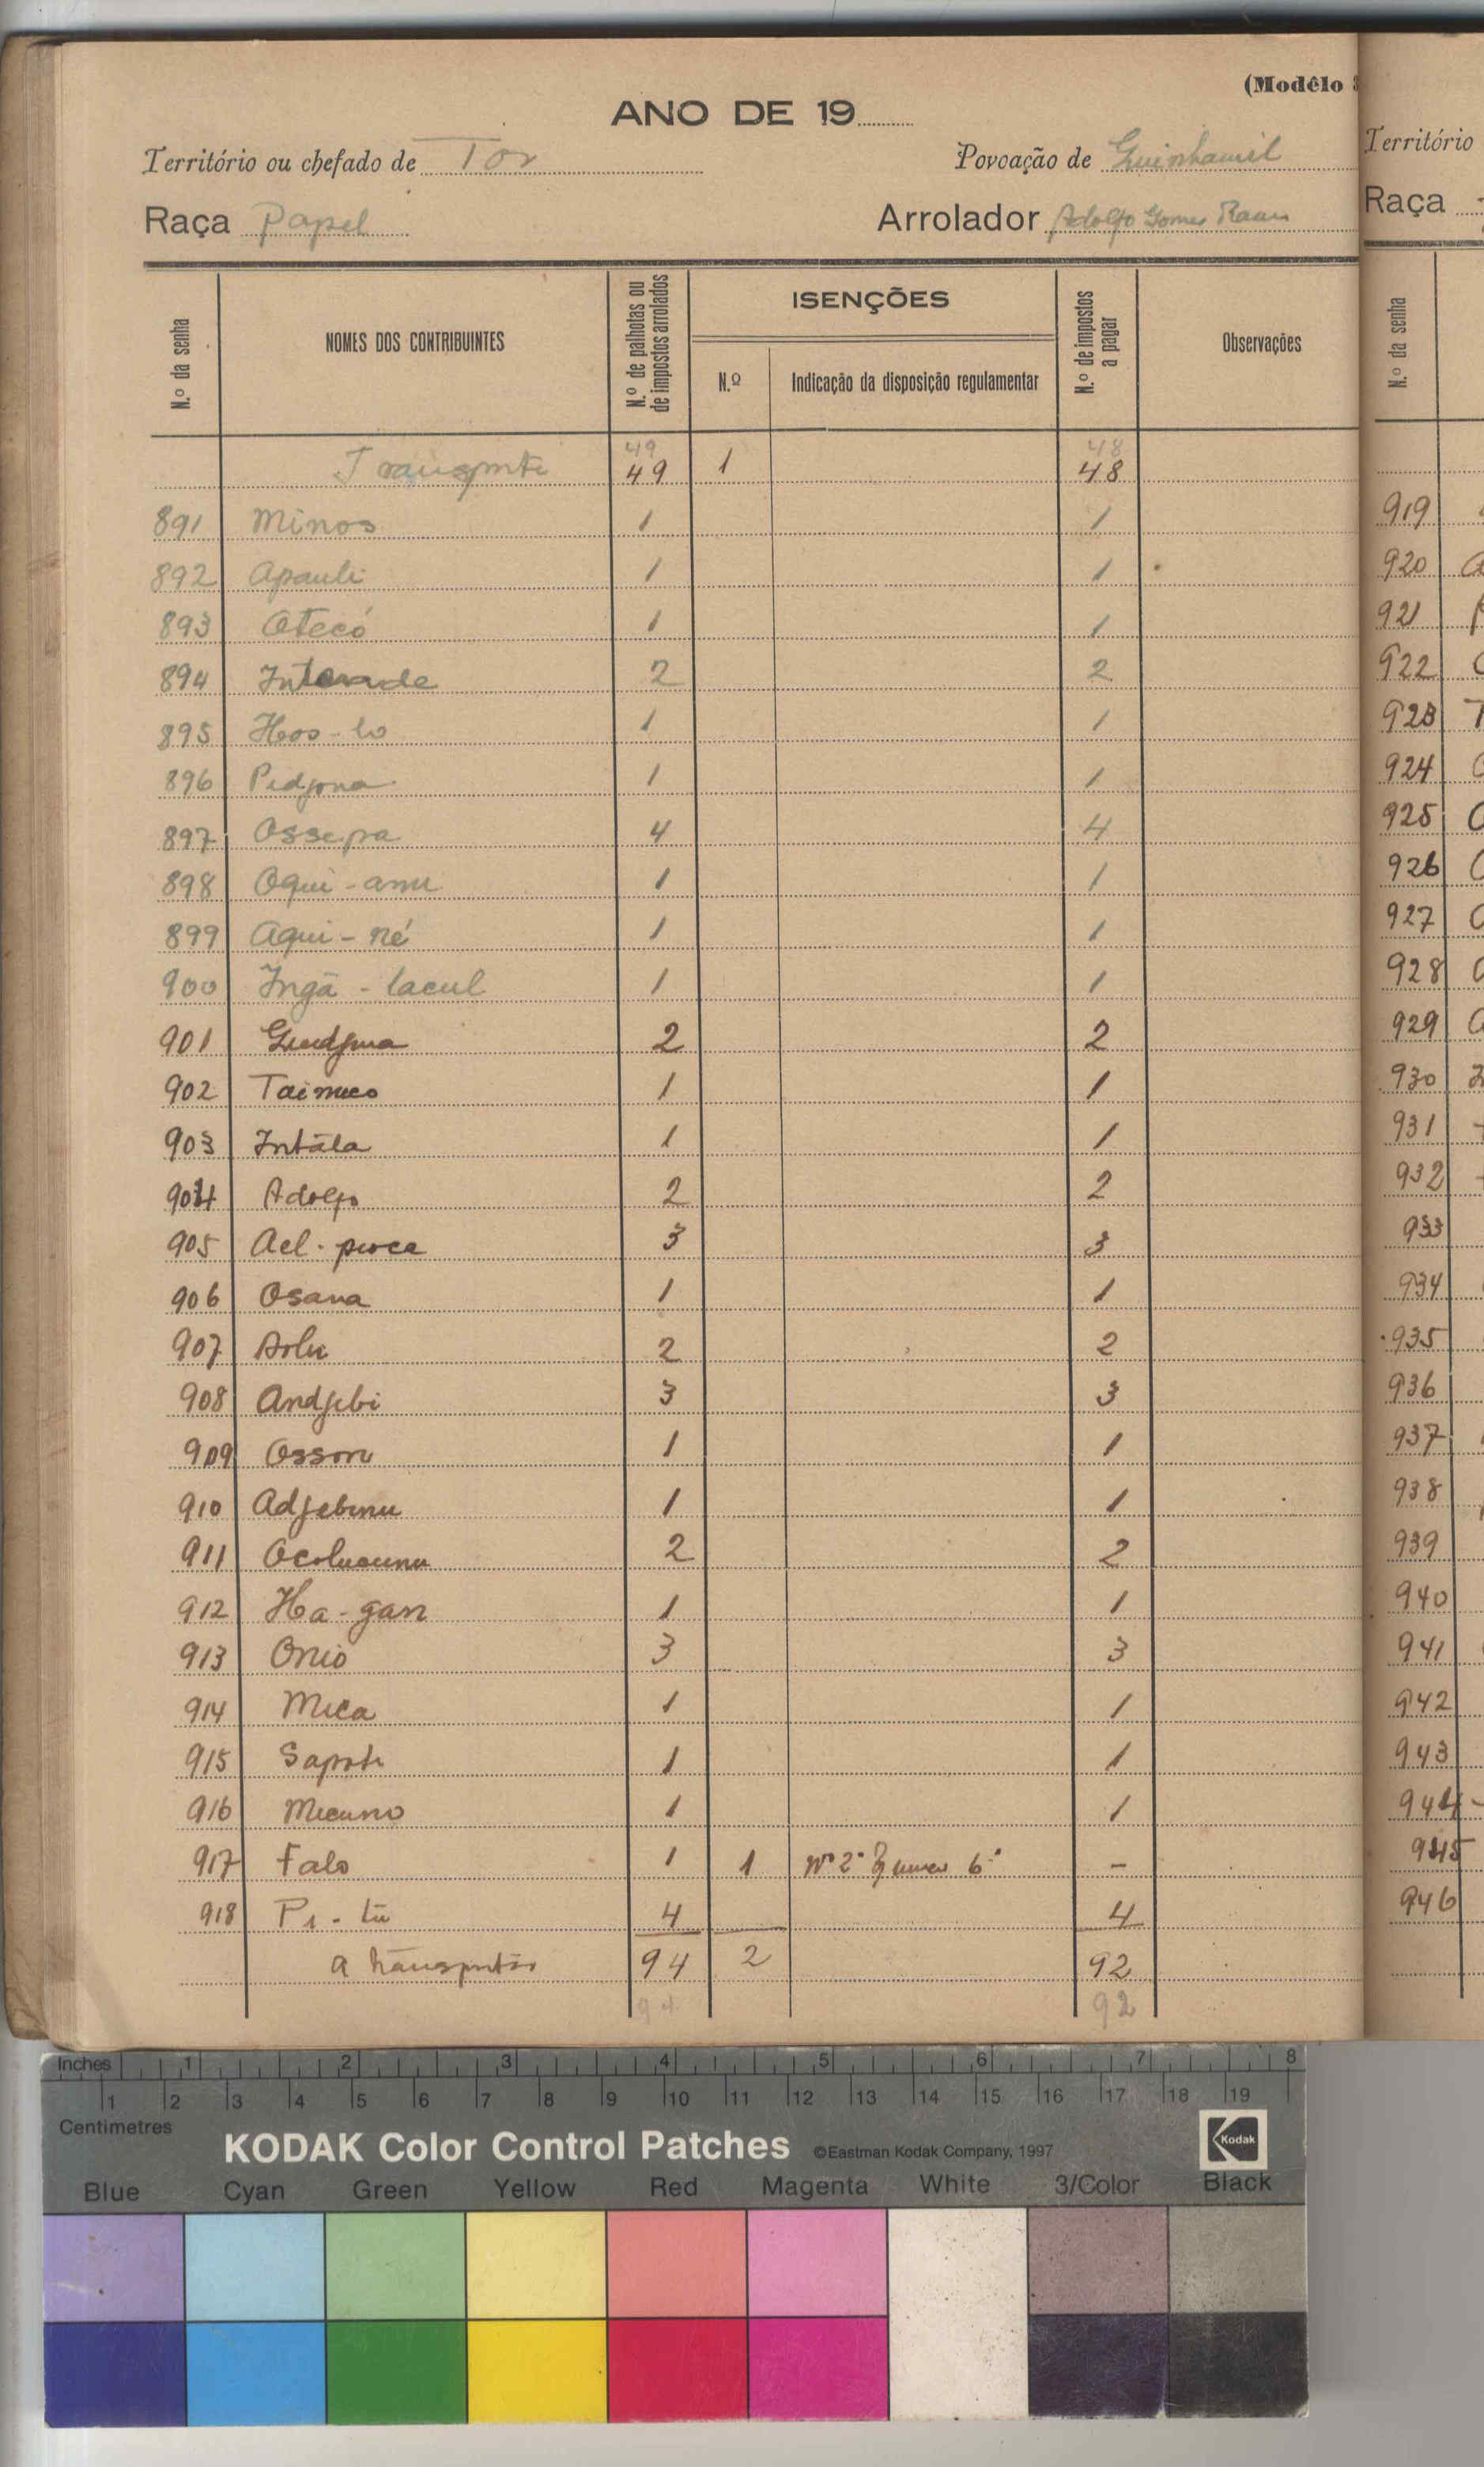 (Modêlo
ANO DE 19
Território ou chefado de Tor Povoação de Guinhamil
Raça Papel Arrolador Adolfo Gomes
N.º da senha NOMES DOS CONTRIBUINTES N.º de palhotas ou de impostos arrolados ISENÇÕES N.º Indicação da disposição regulamentar N.º de impostos a pagar Observações
49 48
Transporte 49 1 48
891 Minos 1 1
892 Apauli 1 1
893 Otecó 1 1
894 2 2
895 Hos-lo 1 1
896 Pidjona 1 1
897 Ossepa 4 4
898 Oqui-anu 1 1
899 Aqui-né 1 1
900 Ingā-lacul 1 1
901 2 2
902 Taimuco 1 1
903 Intāla 1 1
904 Adolfo 2 2
905 Ael-proce 3 3
906 Osana 1 1
907 2 2
908 Andjebi 3 3
909 Osson 1 1
910 Adjebinu 1 1
911 2 2
912 Ha-gan 1 1
913 Onio 3 3
914 Mica 1 1
915 Sapoti 1 1
916 Micuno 1 1
917 Falo 1 1 Nº 2º 6º -
918 Pi-tū 4 4
A transportar 94 2 92
94 92
Território
Raça
N.º da senha
919
920
921
922
923
924
925
926
927
928
929
930
931
932
933
934
935
936
937
938
939
940
941
942
943
944
945
946
Inches 1 2 3 4 5 6 7 8
1 2 3 4 5 6 7 8 9 10 11 12 13 14 15 16 17 18 19
Centimetres
KODAK Color Control Patches ©Eastman Kodak Company, 1997 Kodak
Blue Cyan Green Yellow Red Magenta White 3/Color Black